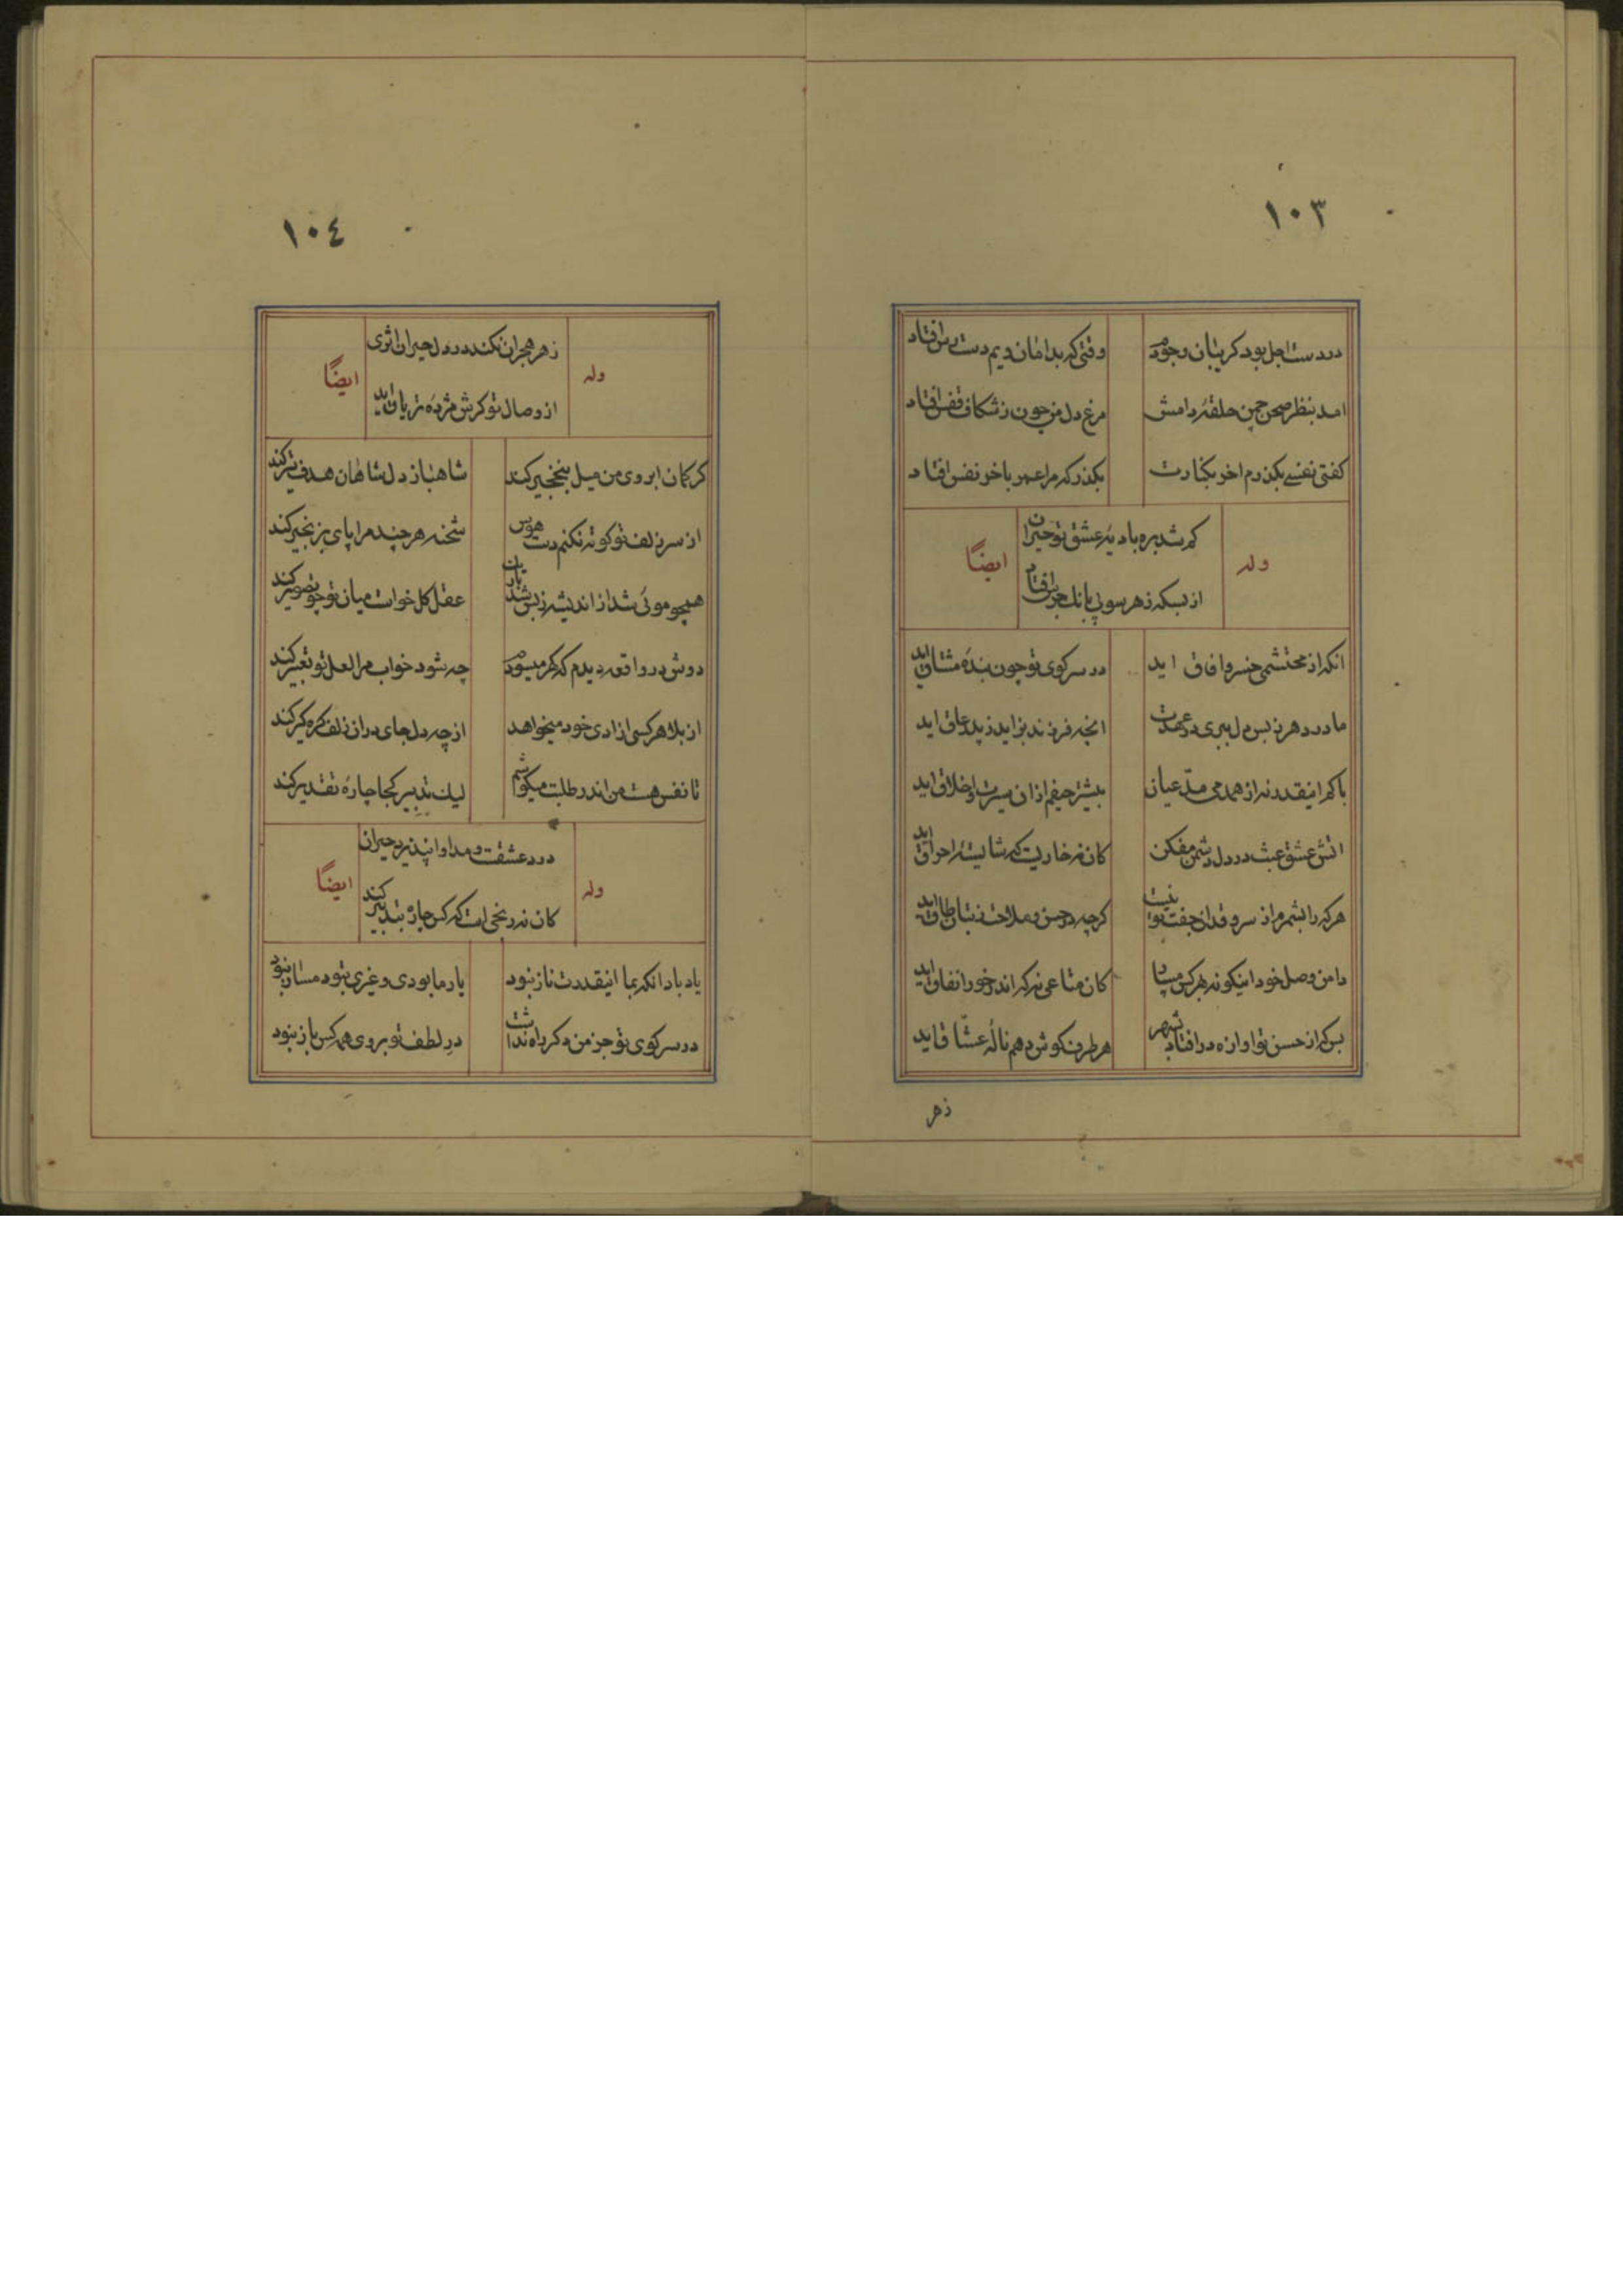 ١٠٣
در دست اجل بود کریبان وجودم
وقتی که بدامان ویم دست رس افتاد
امد بنظر صحن چمن حلقهٔ دامش
مرغ دل من چون ز شکاف قفس افتاد
کفتی نفسی بکذرم اخر بکنارت
بکذر که مرا عمر باخر نفس افتاد
وله
کم شد بره بادیهٔ عشق تو حیران
از بسکه ز هر سوئی بانک جرس افتاد
ایضاً
انکه از محتشمی خسرو افاق اید
در سر کوی تو چون بندهٔ مشتاق اید
مادر دهر ز بس دل ببری در عهدت
انچه فرزند بزاید ز پدر عاق اید
با کم اینقدر نه از همدمی مدّعیان
بیشتر حیفم از ان سیرت و اخلاق اید
اتش عشق عبث در دل دشمن مفکن
کان نه خاریست که شایستهٔ احراق اید
هر که را بشمرم از سرو قدان جفت تو نیست
کرچه در حسن و ملاحت ز بتان طاق اید
دامن وصل خود اینکونه بهر کس مسپار
کان متاعی نه که اندر خور انفاق اید
بس که از حسن تو اوازه در افتاد بشهر
هر طرف کوش دهم نالهٔ عشّاق اید
زهر
١٠٤
وله
زهر هجران نکند در دل حیران اثری
از وصال تو کرش مژدهٔ تریاق اید
ایضاً
کر کمان ابروی من میل بنخجیر کند
شاهباز دل شاهان هدف تیر کند
از سر زلف تو کوته نکنم دست هوس
شحنه هر چند مرا پای بزنجیر کند
همچو موئی شد از اندیشه ز بس شد باریک
عقل کل خواست میان تو چو تصویر کند
دوش در واقعه دیدم که کمر میسودم
چه شود خواب مرا لعل تو تعبیر کند
از بلا هر کسی ازادی خود میخواهد
از چه دل جای در ان زلف کره کیر کند
تا نفس هست من اندر طلبت میکوشم
لیک تدبیر کجا چارهٔ تقدیر کند
وله
درد عشقت و مداوا نپذیرد حیران
کان نه رنجی است که کس چاره بتدبیر کند
ایضاً
یاد باد انکه بما اینقدرت ناز نبود
یار ما بودی و غیری بتو دمساز نبود
در سر کوی تو جز من دکر راه نداشت
در لطف تو بروی همه کس باز نبود